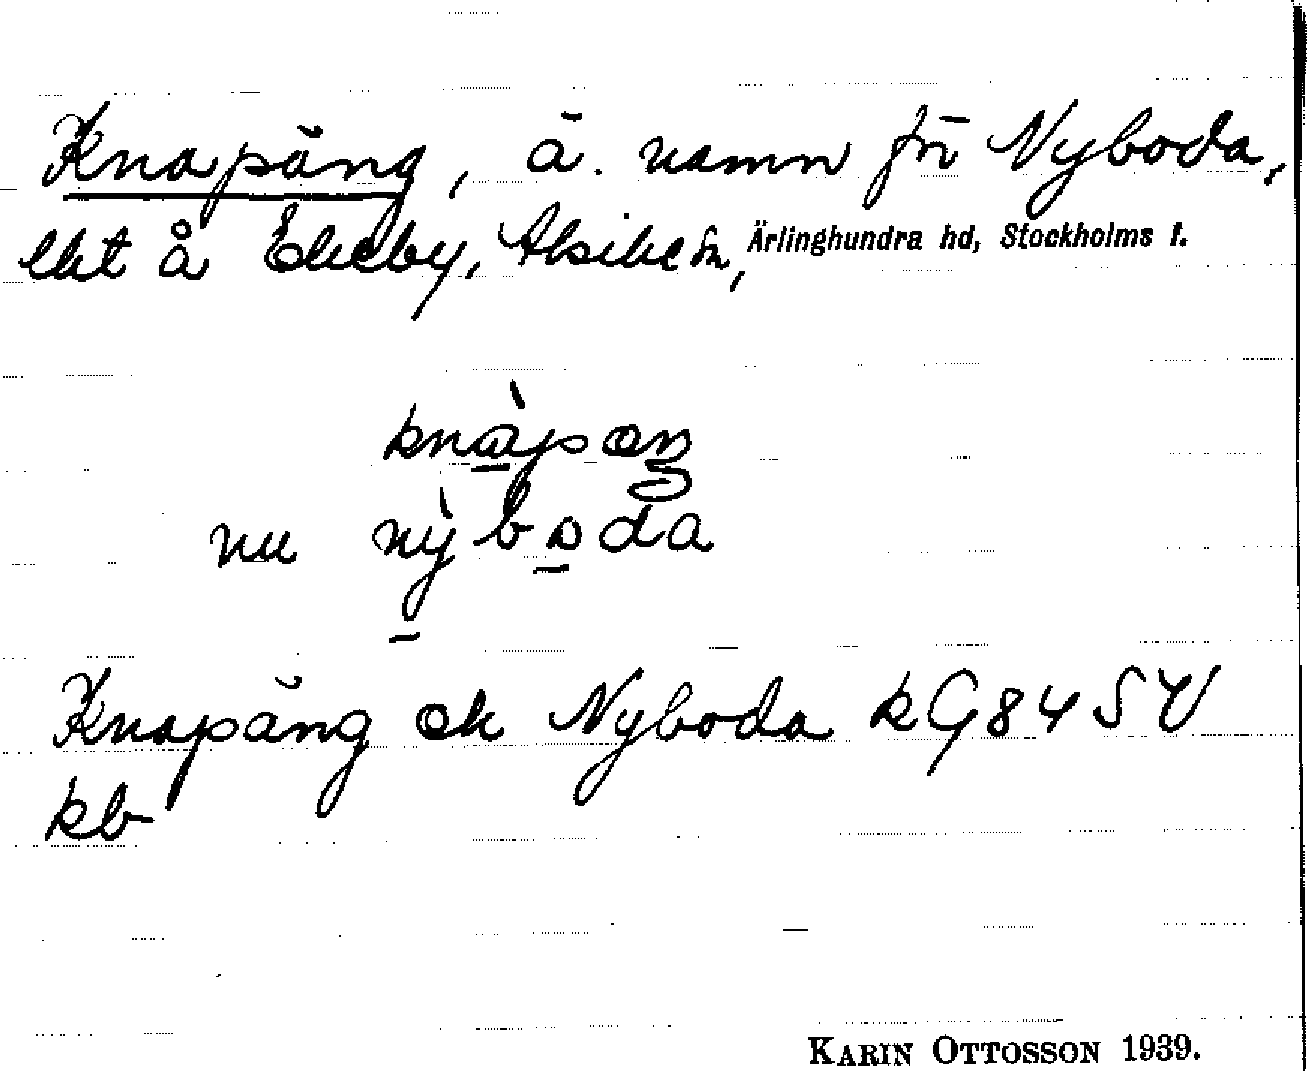 Knapäng, ä. namn fr̄ Nyboda,
lht å Ekeby, Alsike sn, Ärlinghundra hd, Stockholms l.
knàpaŋ
nu nỳboda
Knapäng ek Nyboda kG845V
kb
KARIN OTTOSSON 1939.